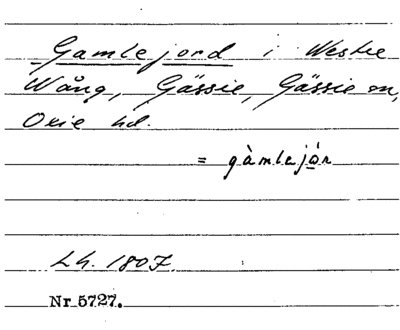 Gamlejord i Westre
Wång, Gässie, Gässie sn,
Oxie hd.
= gàmlejór
Lh. 1807.
Nr 5727.